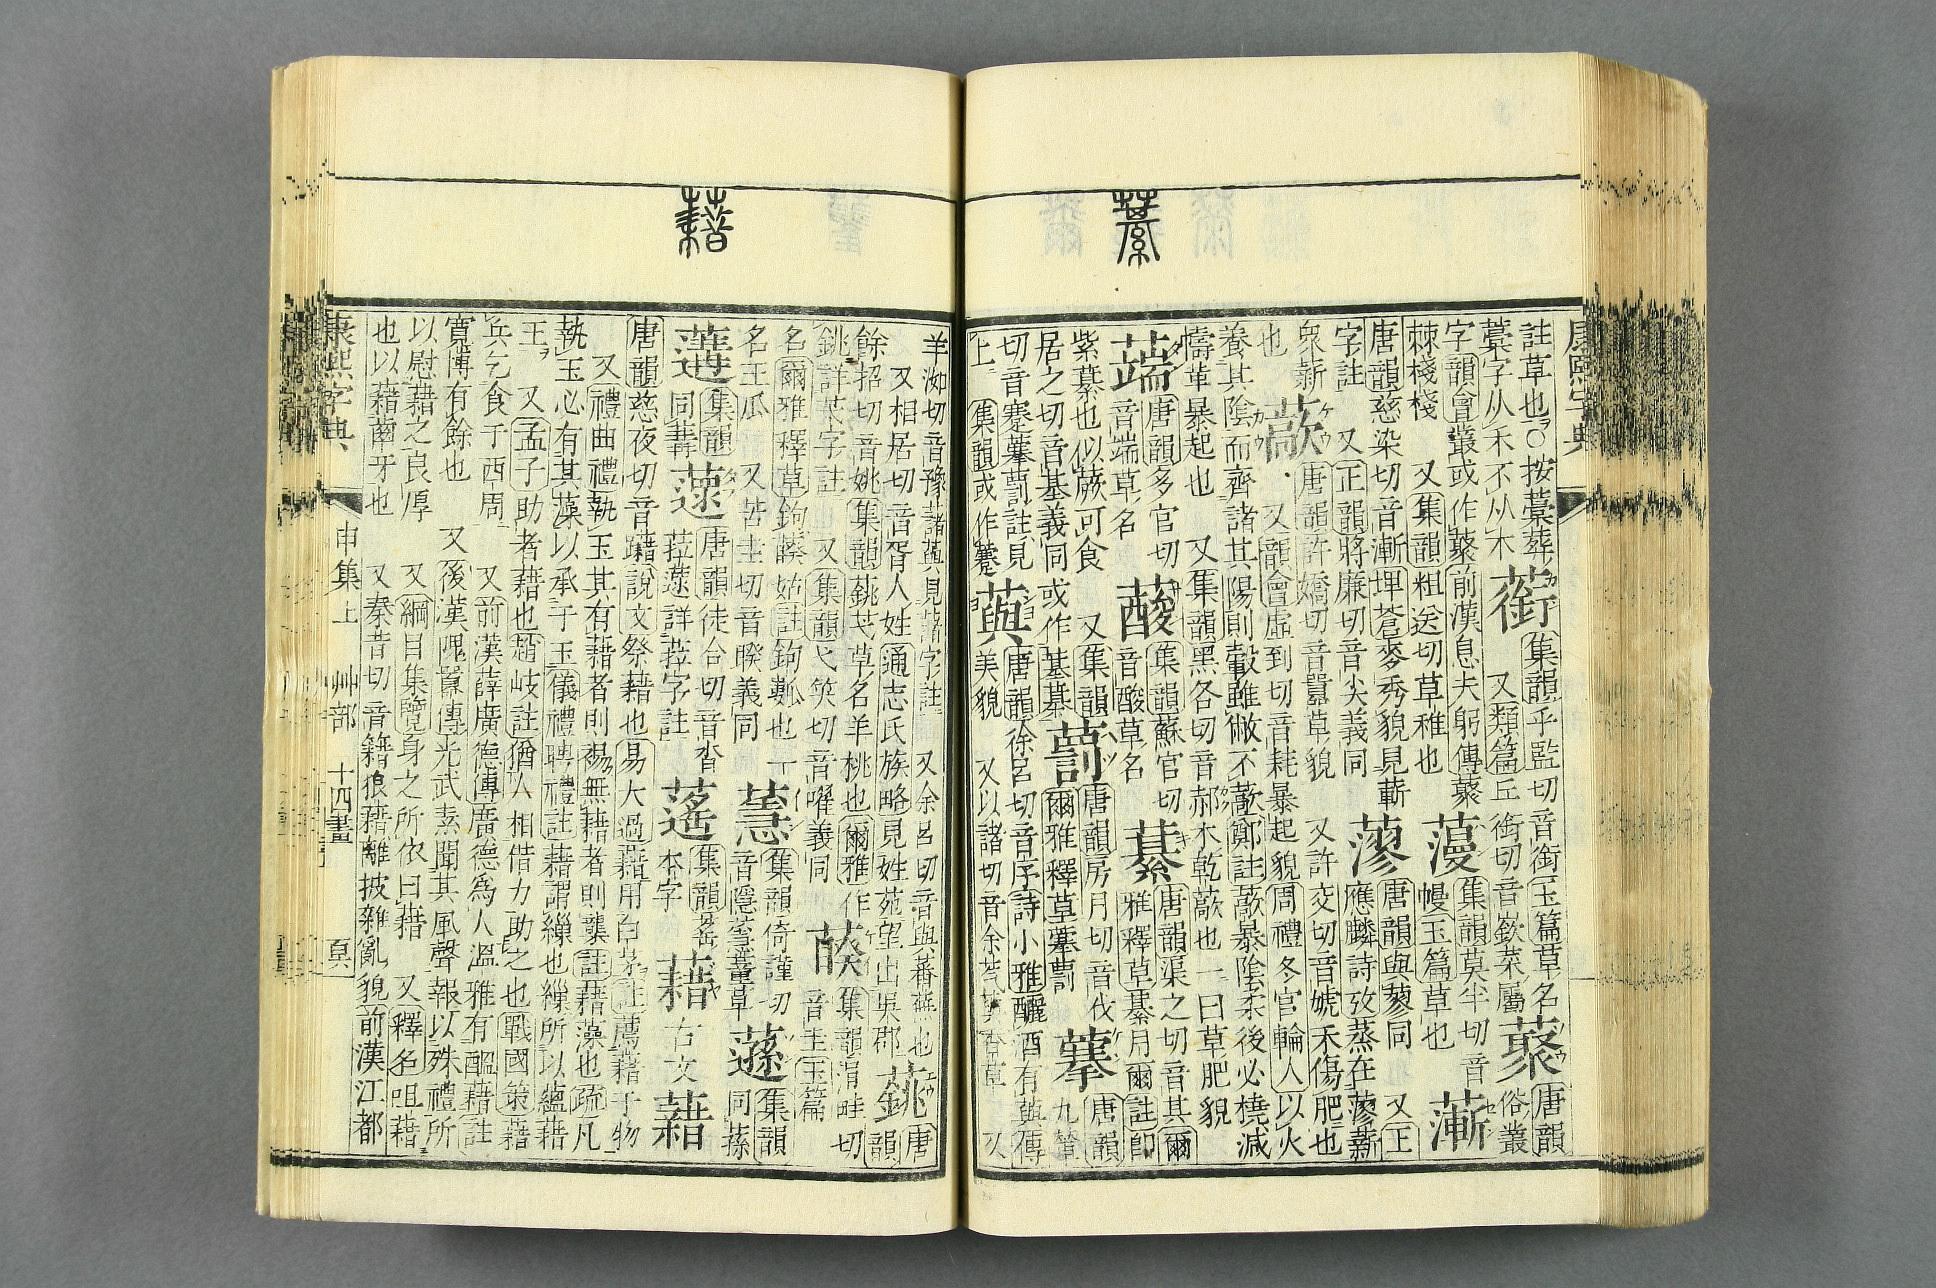 藄
康熙字典
註草也○按藁葬
藁字从禾不从木
集韻乎監切音銜玉篇草名
又類篇丘銜切音嶔菜屬
藂
唐韻
俗叢
字韻會叢或作藂前漢息夫躬傳藂
棘棧棧 又集韻粗送切草稚也
集韻莫半切音
幔玉篇草也
唐韻慈染切音漸埤蒼麥秀貌見蔪
字註 又正韻將廉切音尖義同
唐韻與蓼同 又王
應麟詩攷蒸在蓼薪
衆薪
也
藃
唐韻許嬌切音囂草貌 又許交切音虓禾傷肥也
又韻會虛到切音耗暴起貌周禮冬官輪人以火
養其陰而齊諸其陽則轂雖敝不藃鄭註藃暴陰柔後必橈減
幬革暴起也 又集韻黑各切音郝木乾藃也一曰草肥貌
唐韻多官切
音端草名
集韻蘇官切
音酸草名
藄
唐韻渠之切音其爾
雅釋草藄月爾註卽
紫藄也似蕨可食 又集韻
居之切音基義同或作
藅
唐韻房月切音伐
爾雅釋草藆藅
藆
唐韻
九輦
切音蹇藆藅註見
上 集韻或作
藇
唐韻徐呂切音序詩小雅釃酒有藇傳
美貌 又以諸切音余藇藇香草 又
藉
羊洳切音豫藷藇見藷字註 又余呂切音與蕃蕪也
又相居切音胥人姓通志氏族略見姓苑望出吳郡
唐
韻
餘招切音姚集韻芅草名羊桃也爾雅作
銚詳芅字註 又集韻弋笑切音曜義同
藈
集韻涓畦切
音圭玉篇
名爾雅釋草鉤藈姑註鉤也一
名王瓜 又苦圭切音睽義同
集韻倚謹切
音隱菫草
集韻
同蓀
集韻
同
唐韻徒合切音沓
菈詳菈字註
集韻
本字
藉
古文
唐韻慈夜切音躤說文祭藉也易大過藉用白茅註薦藉于物
又禮曲禮執玉其有藉者則裼無藉者則襲註藉藻也疏凡
執玉必有其藻以承于玉儀禮聘禮註藉謂繅也繅所以縕藉
王 又孟子助者藉也趙岐註猶人相借力助之也戰國策藉
兵乞食于西周 又前漢薛廣德傳廣德爲人溫雅有醞藉註
寬博有餘也 又後漢隗囂傳光武素聞其風聲報以殊禮所
以慰藉之良厚 又綱目集覽身之所依曰藉 又釋名咀藉
也以藉齒牙也 又秦昔切音籍狼藉離披雜亂貌前漢江都
康熙字典 申集上 艸部 十四畫